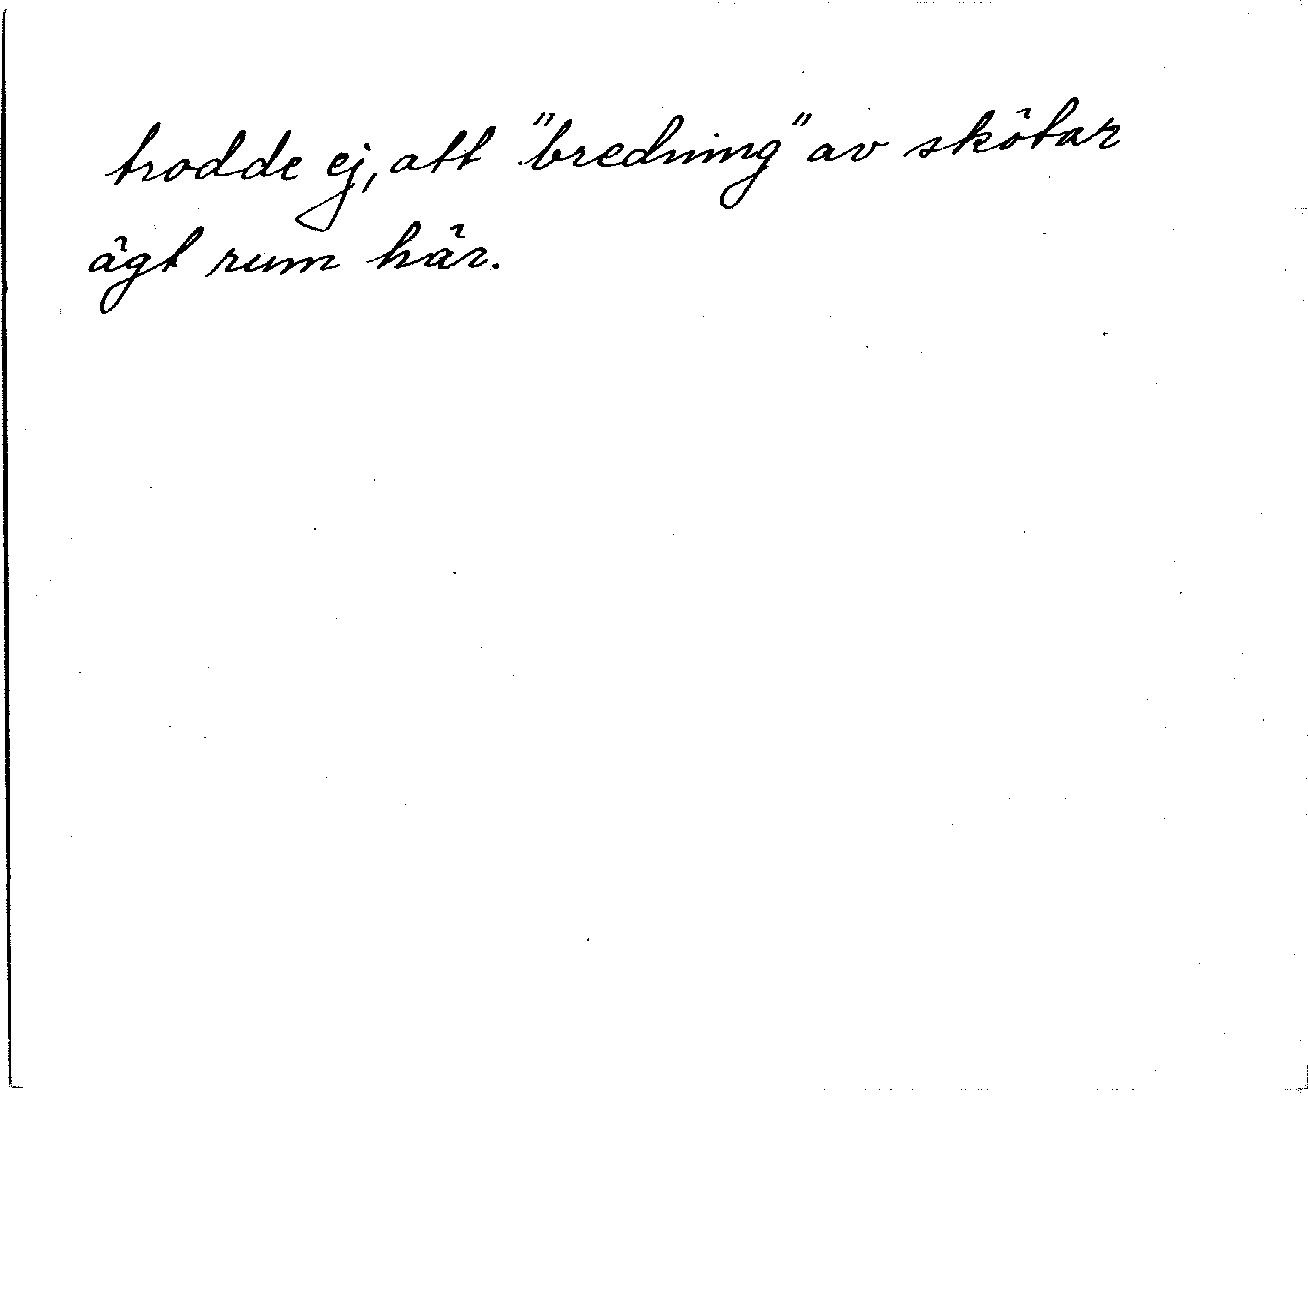 trodde ej, att "bredning" av skötar
ägt rum här.